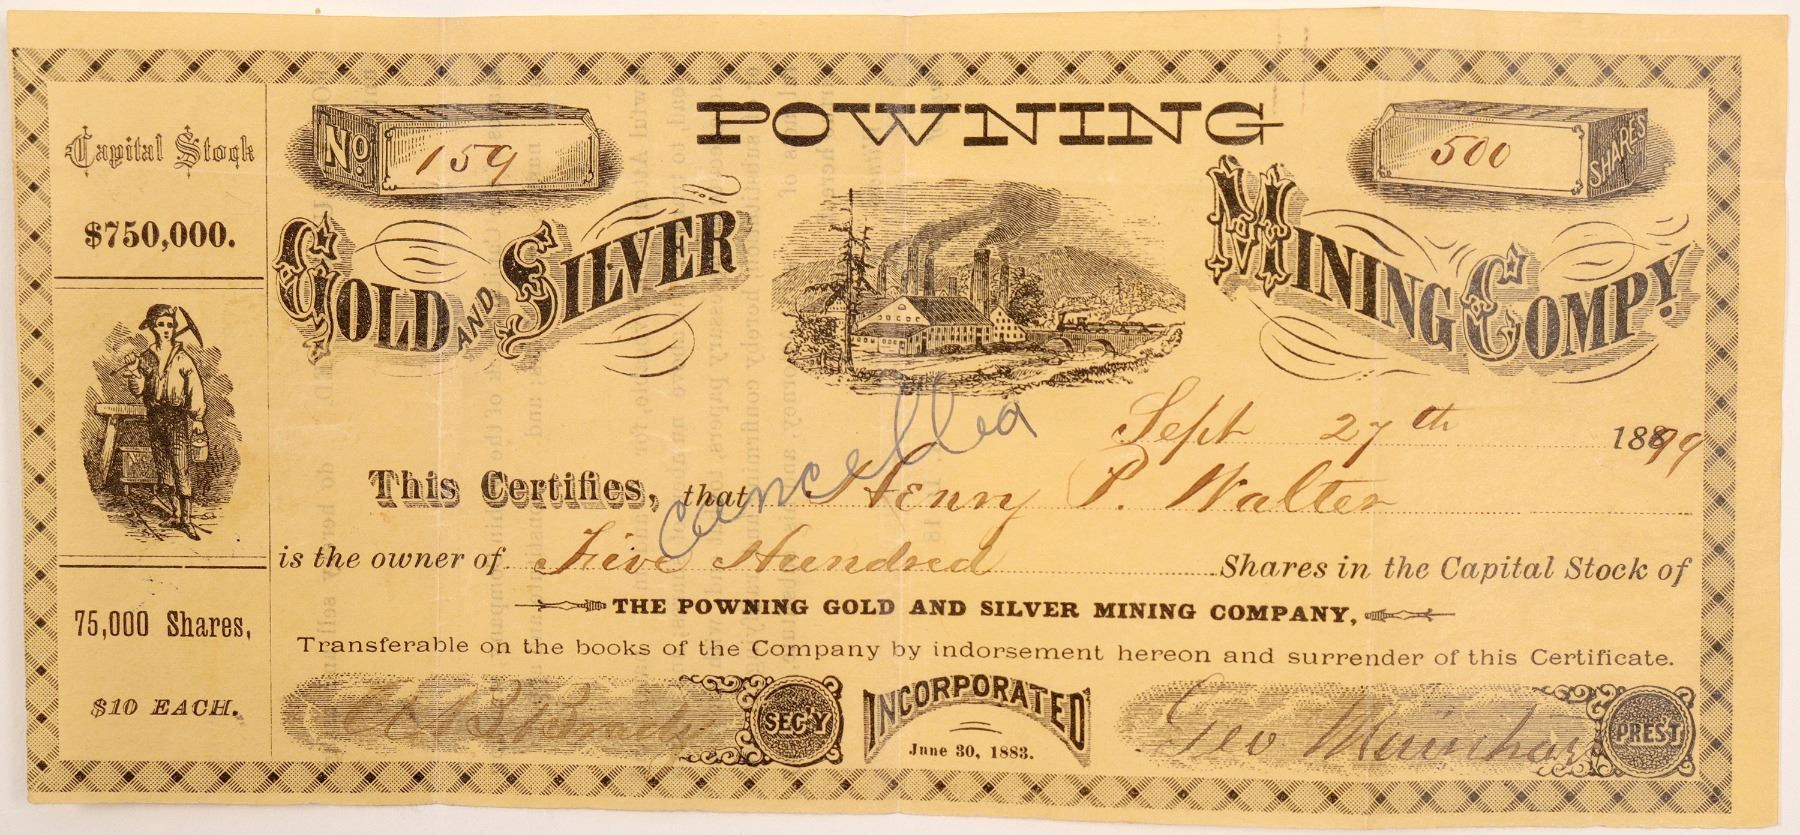 Capital Stock
$750,000.
75,000 Shares,
$10 EACH.
No 159
POWNING
500 SHARES
GOLD AND SILVER MINING COMPY.
Sept 27th 1899
Cancelled
This Certifies, that Henry P. Walter
is the owner of Five Hundred Shares in the Capital Stock of
THE POWNING GOLD AND SILVER MINING COMPANY,
Transferable on the books of the Company by indorsement hereon and surrender of this Certificate.
SEC'Y
INCORPORATED
June 30, 1883.
Geo
PRES'T